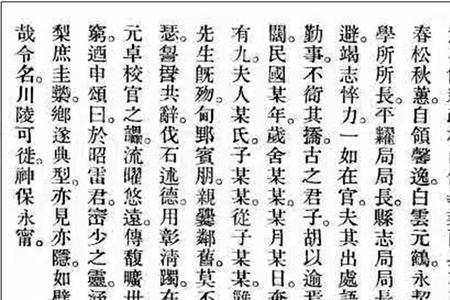 春松秋蕙。自領馨逸。白雲元鶴。永契
學所所長。平糶局局長。縣志局局長
避。竭志悴力。一如在官。夫其出處語
勤事。不衒其撟。古之君子。胡以逾
闕。民國某年。歲舍某某。某月某日。奄
有九。夫人某氏。子某某。從子某某。雖
先生旣歿。甸郢賓朋。親爨鄰舊。莫不
瑟。共辭。伐石述德。用彰清躅。在
元卓校官之。流曜悠遠。傳馥曠世
窮。迺申頌曰。於昭雷君。少之靈。涵
梨庶圭槷。鄉遂典型。亦見亦隱。如
哉令名。川陵可徙。神保永甯。